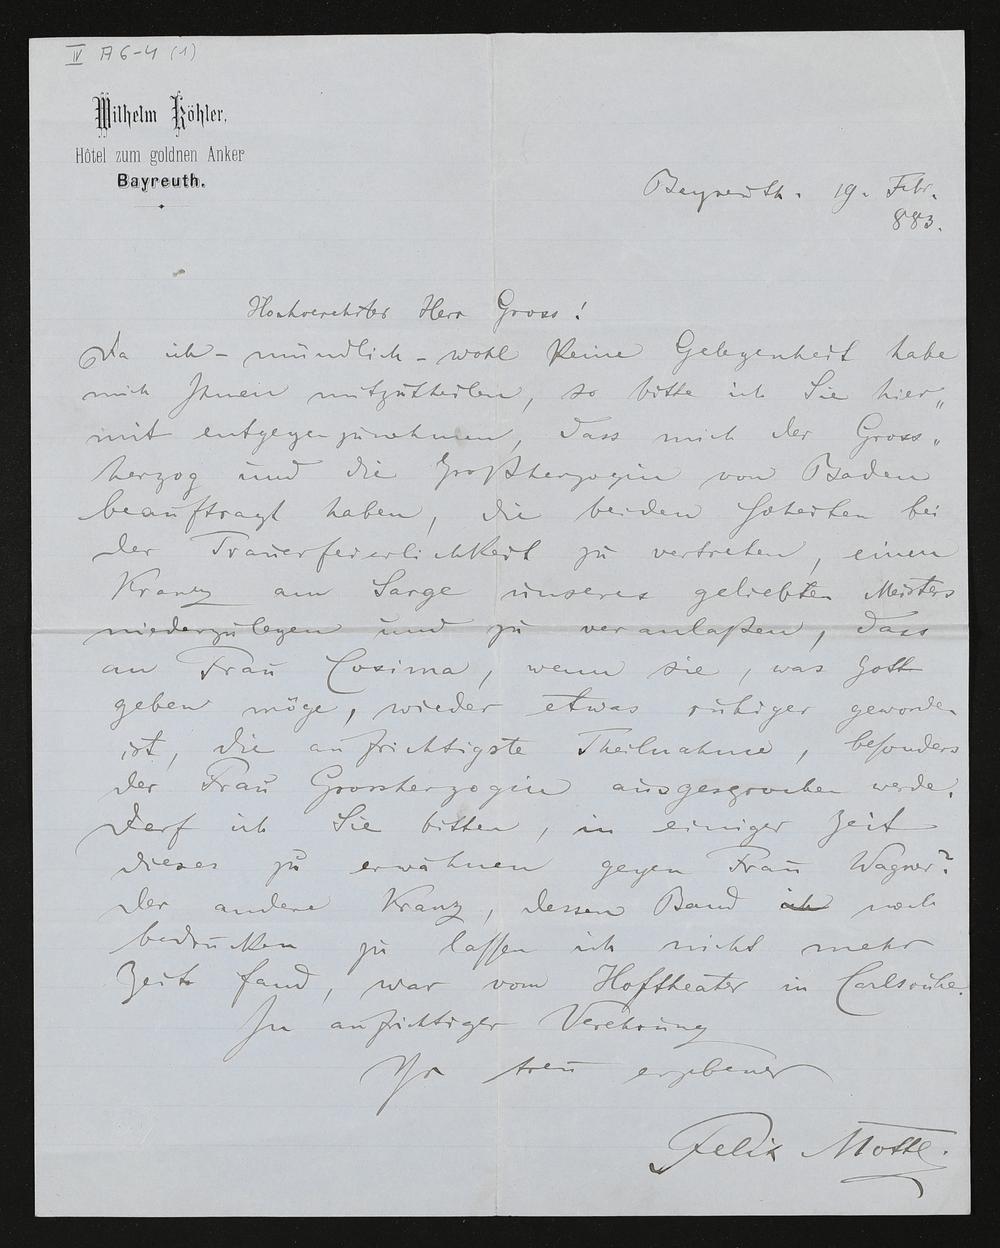 IV A 6-4 (1)
Wilhelm Köhler.
Hôtel zum goldnen Anker
Bayreuth.
Bayreuth. 19. Febr.
883.
Hochverehrter Herr Gross!
Da ich - mündlich - wohl keine Gelegenheit habe
mich Ihnen mitzutheilen, so bitte ich Sie hier„
mit entgegenzunehmen, dass mich der Gross„
herzog und die Großherzogin von Baden
beauftragt haben, die beiden Hoheiten bei
der Trauerfeierlichkeit zu vertreten, einen
Kranz am Sarge unseres geliebten Meisters
niederzulegen und zu veranlaßen, dass
an Frau Cosima, wenn sie, was Gott
geben möge, wieder etwas ruhiger geworden
ist, die aufrichtigste Theilnahme, besonders
der Frau Grossherzogin ausgesprochen werde.
Darf ich Sie bitten, in einiger Zeit
dieses zu erwähnen gegen Frau Wagner?
Der andere Kranz, dessen Band ich noch
bedrucken zu lassen ich nicht mehr
Zeit fand, war vom Hoftheater in Carlsruhe.
In aufrichtiger Verehrung
Ihr treu ergebener
Felix Mottl.